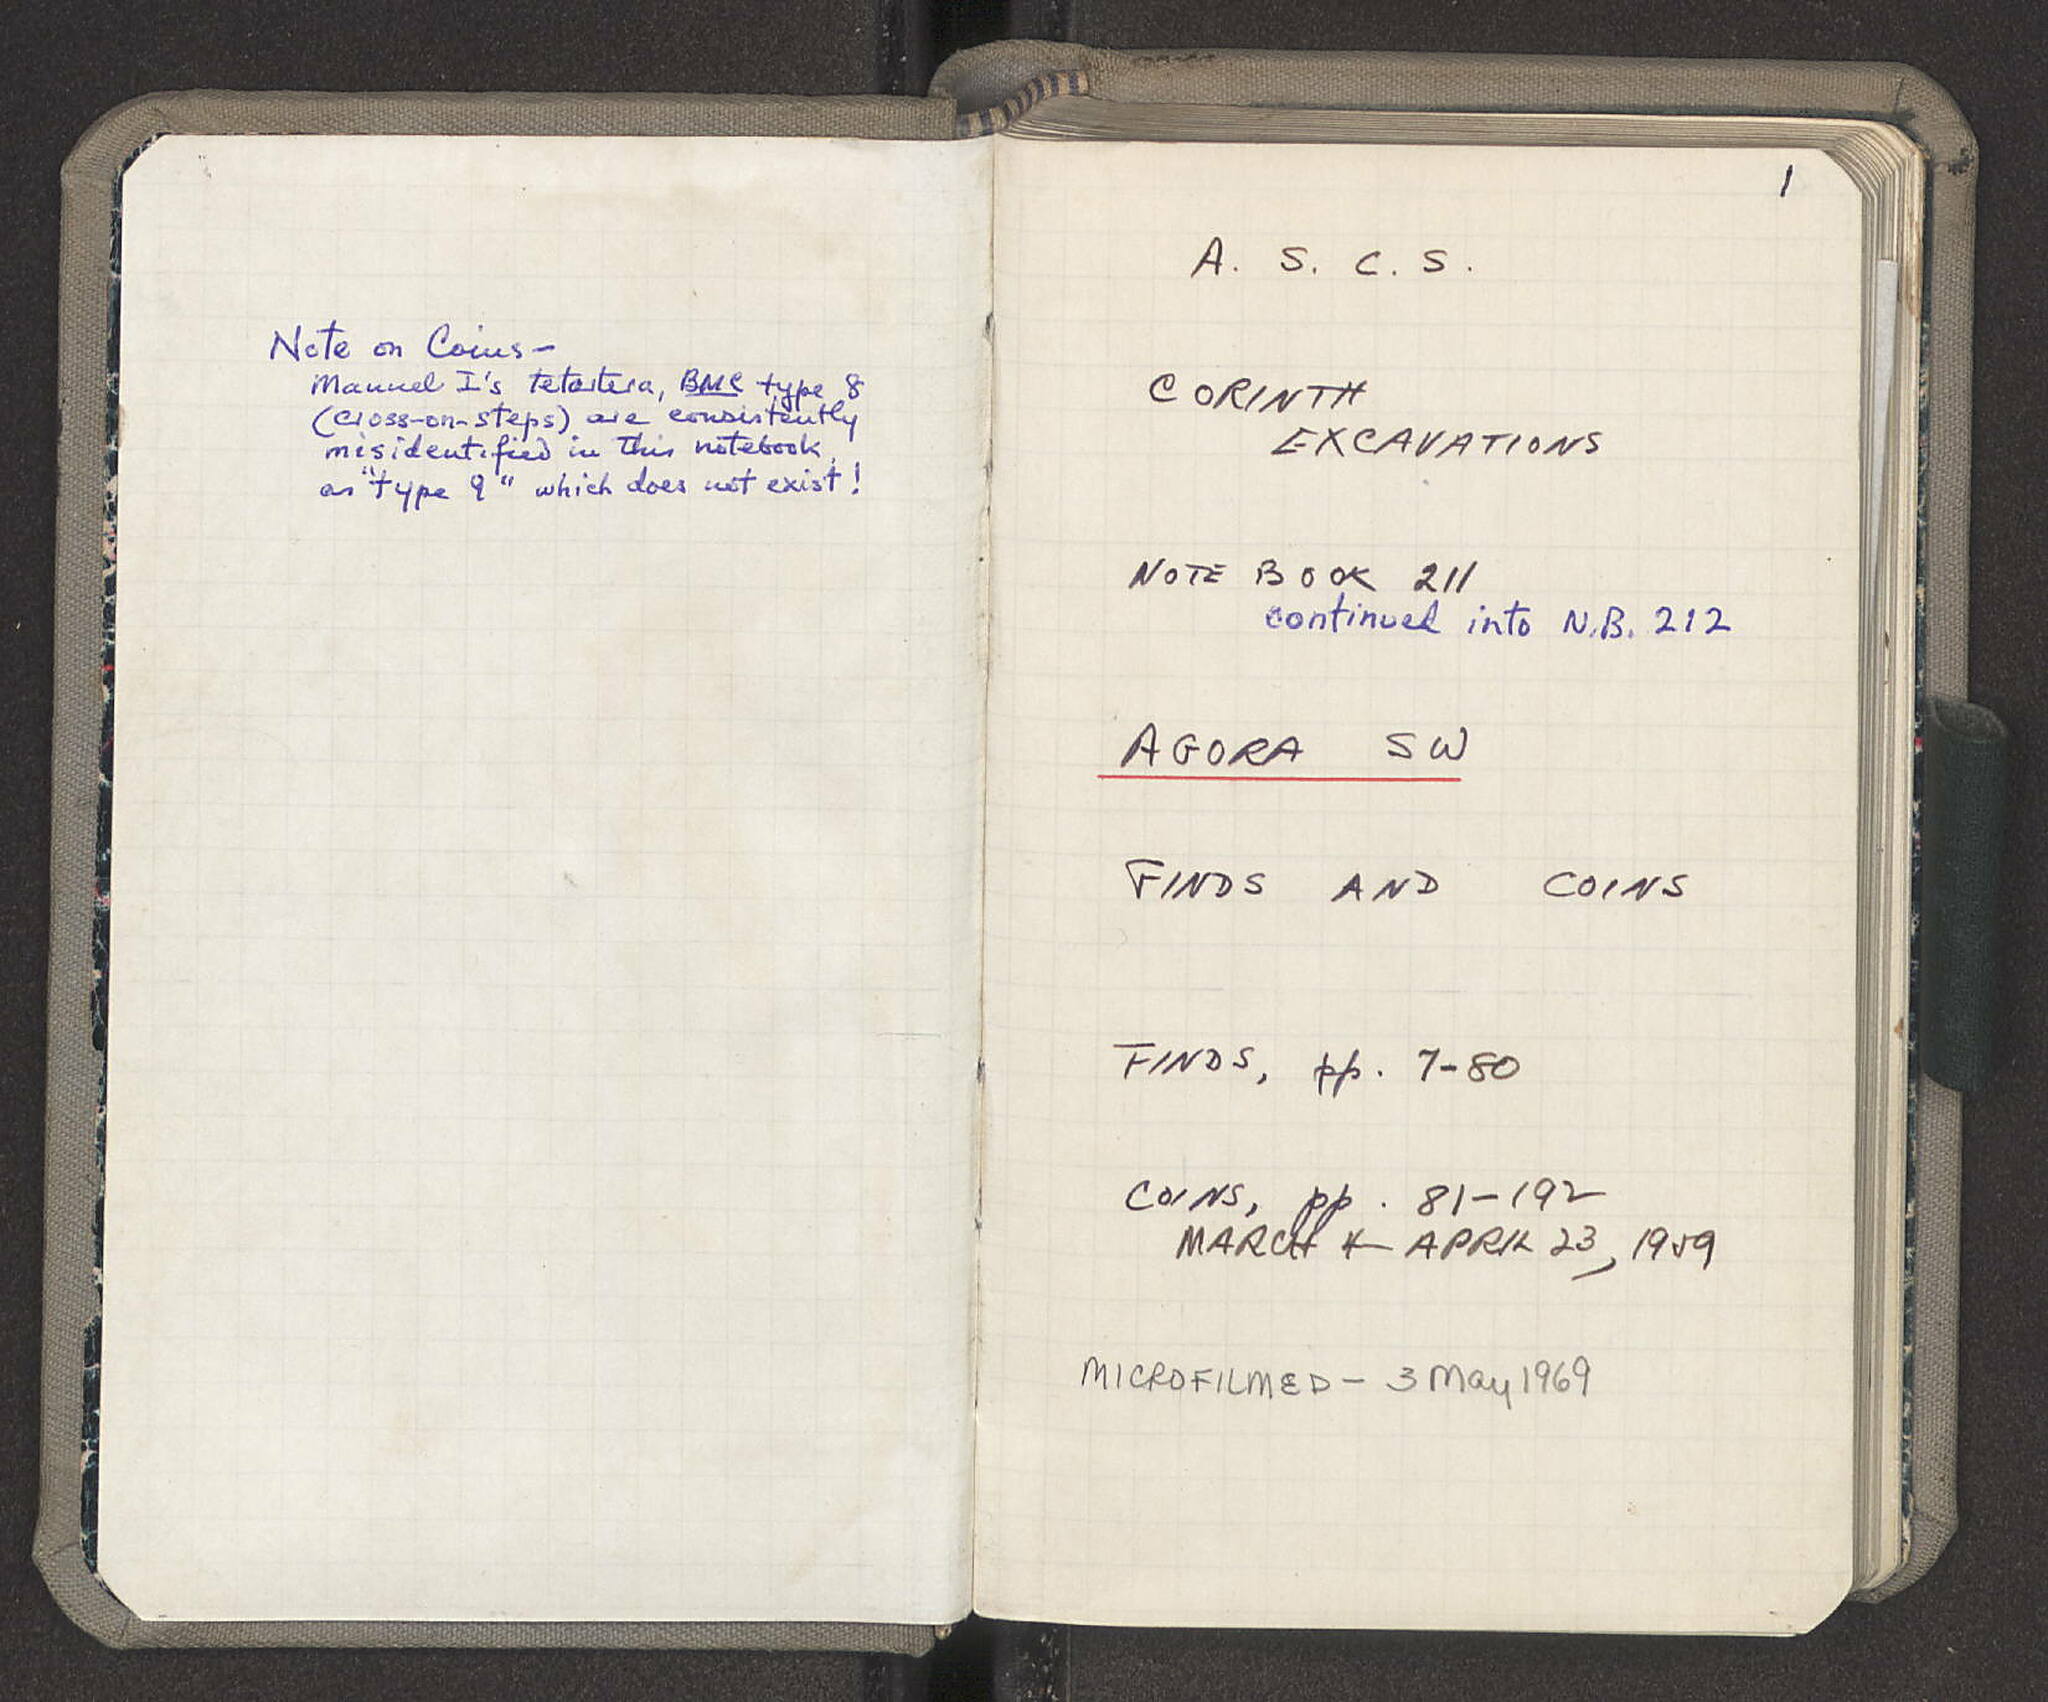 Note on Coins-
Manuel I's tetartera, BMC type 8
(cross-on-steps) are consistently
misidentified in this notebook
as "type 9" which does not exist!
1
A. S. C. S.
CORINTH
EXCAVATIONS
NOTE BOOK 211
continued into N.B. 212
AGORA SW
FINDS AND COINS
FINDS, pp. 7-80
COINS, pp. 81-192
MARCH - APRIL 23, 1959
MICROFILMED - 3 May 1969